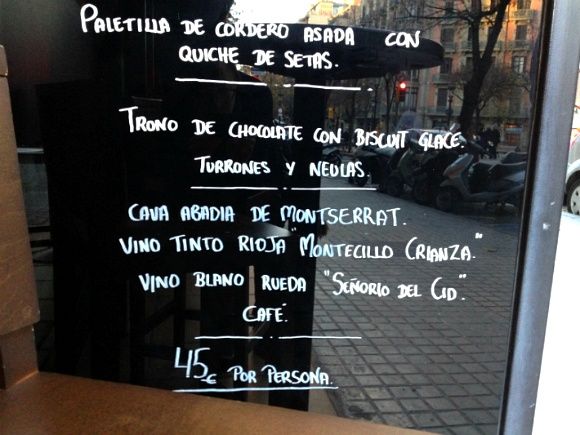 PALETILLA DE CORDERO ASADA CON
QUICHE DE SETAS.
TRONO DE CHOCOLATE CON BISCUIT GLACE.
TURRONES Y NEULAS.
CAVA ABADIA DE MONTSERRAT.
VINO TINTO RIOJA "MONTECILLO CRIANZA."
VINO BLANO RUEDA "SEÑORIO DEL CID".
CAFÉ.
45€ POR PERSONA.